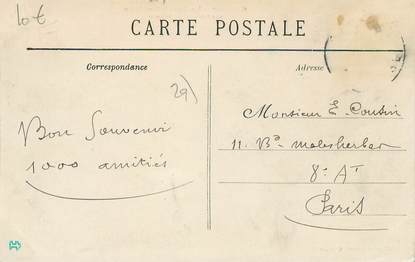 10€
CARTE POSTALE
Correspondance
Adresse
29)
Bon Souvenir
1000 amitiés
Monsieur E. Cousin
11. Bd. malesherbes
8e At
Paris